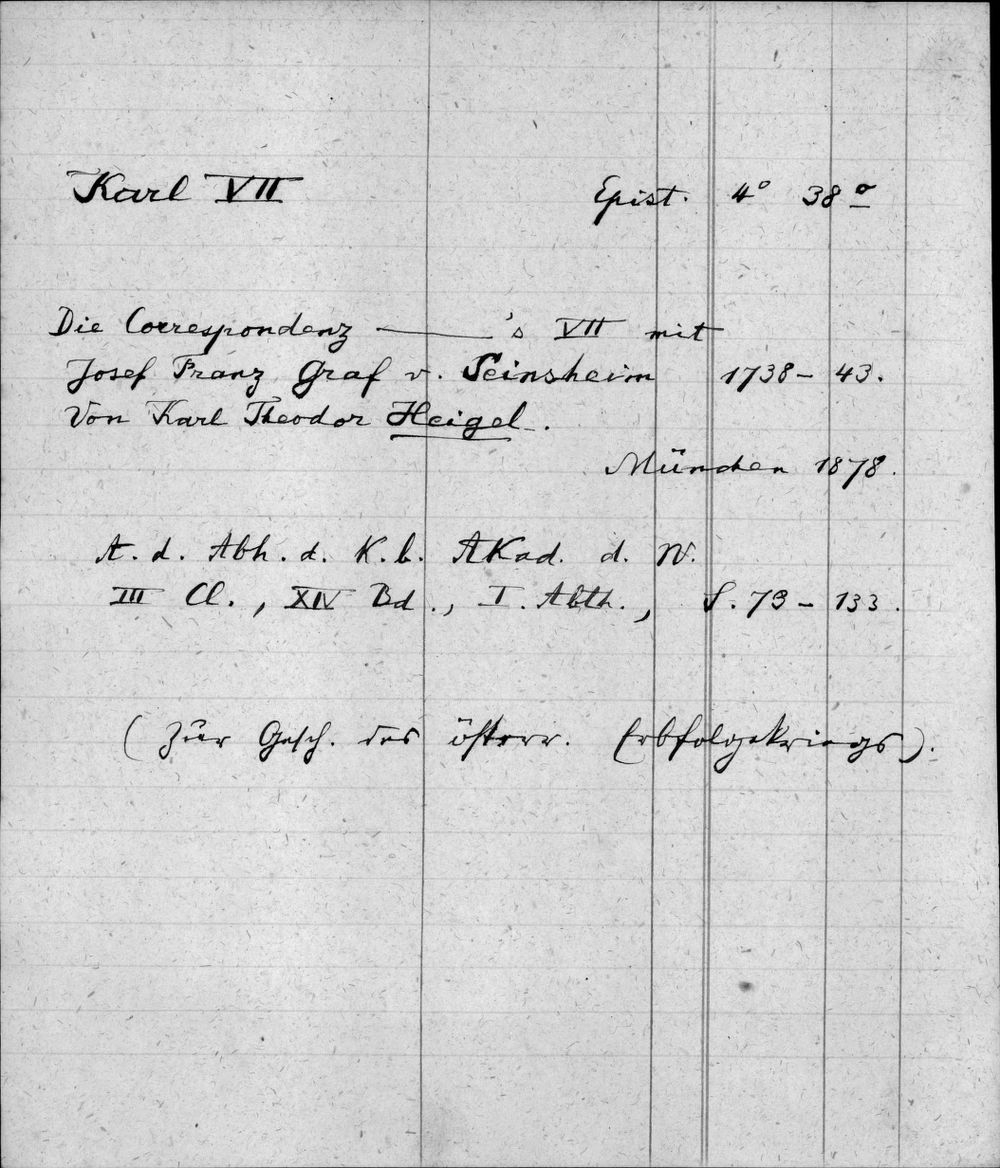 Karl VII Epist. 4° 38º
Die Correspondenz ———'s VII mit
Josef Franz Graf v. Seinsheim 1738-43.
Von Karl Theodor Heigel.
München 1878.
A. d. Abh. d. K. b. Akad. d. W.
III Cl., XIV Bd., I. Abth., S. 73-133.
(Zur Gesch. des österr. Erbfolgekriegs).